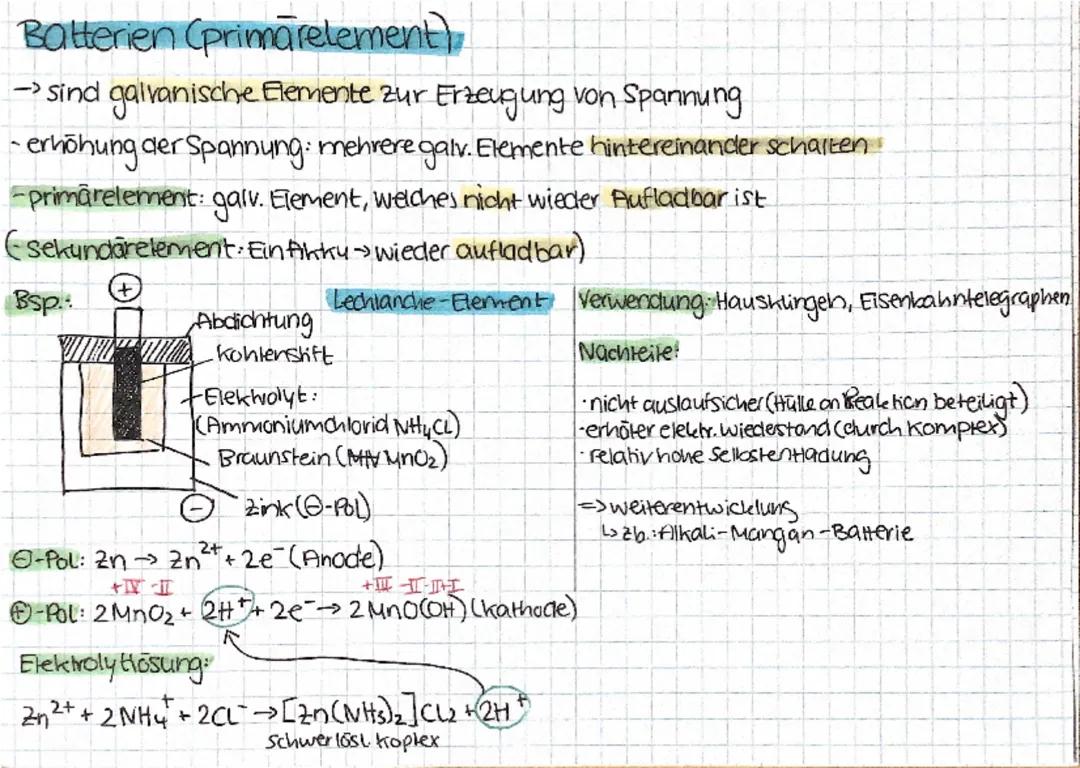 Batterien (primärelement)
→ sind galvanische Elemente zur Erzeugung von Spannung
- erhöhung der Spannung: mehrere galv. Elemente hintereinander schalten
- primärelement: galv. Element, welches nicht wieder Aufladbar ist
(- sekundärelement: Ein Akku → wieder aufladbar)
Bsp.:
+
Lechlanche-Element
Abdichtung
Kohlenstift
Elektrolyt:
(Ammoniumchlorid NH4CL)
Braunstein (MnO2)
Zink (⊖-Pol)
−
⊖-Pol: Zn → Zn²⁺ + 2e⁻ (Anode)
+IV -II +III -II -II +I
⊕-Pol: 2 MnO2 + 2H⁺ + 2e⁻ → 2 MnO(OH) (Kathode)
Elektrolytlösung:
Zn²⁺ + 2 NH4⁺ + 2CL⁻ → [Zn(NH3)2]CL2 + 2H⁺
schwer lösl. Koplex
Verwendung: Hausklingeln, Eisenbahntelegraphen
Nachteile:
· nicht auslaufsicher (Hülle an Reaktion beteiligt)
- erhöter elektr. wiedestand (durch Komplex)
· relativ hohe Selbstentladung
=> weiterentwicklung
↳ zb.: Alkali-Mangan-Batterie